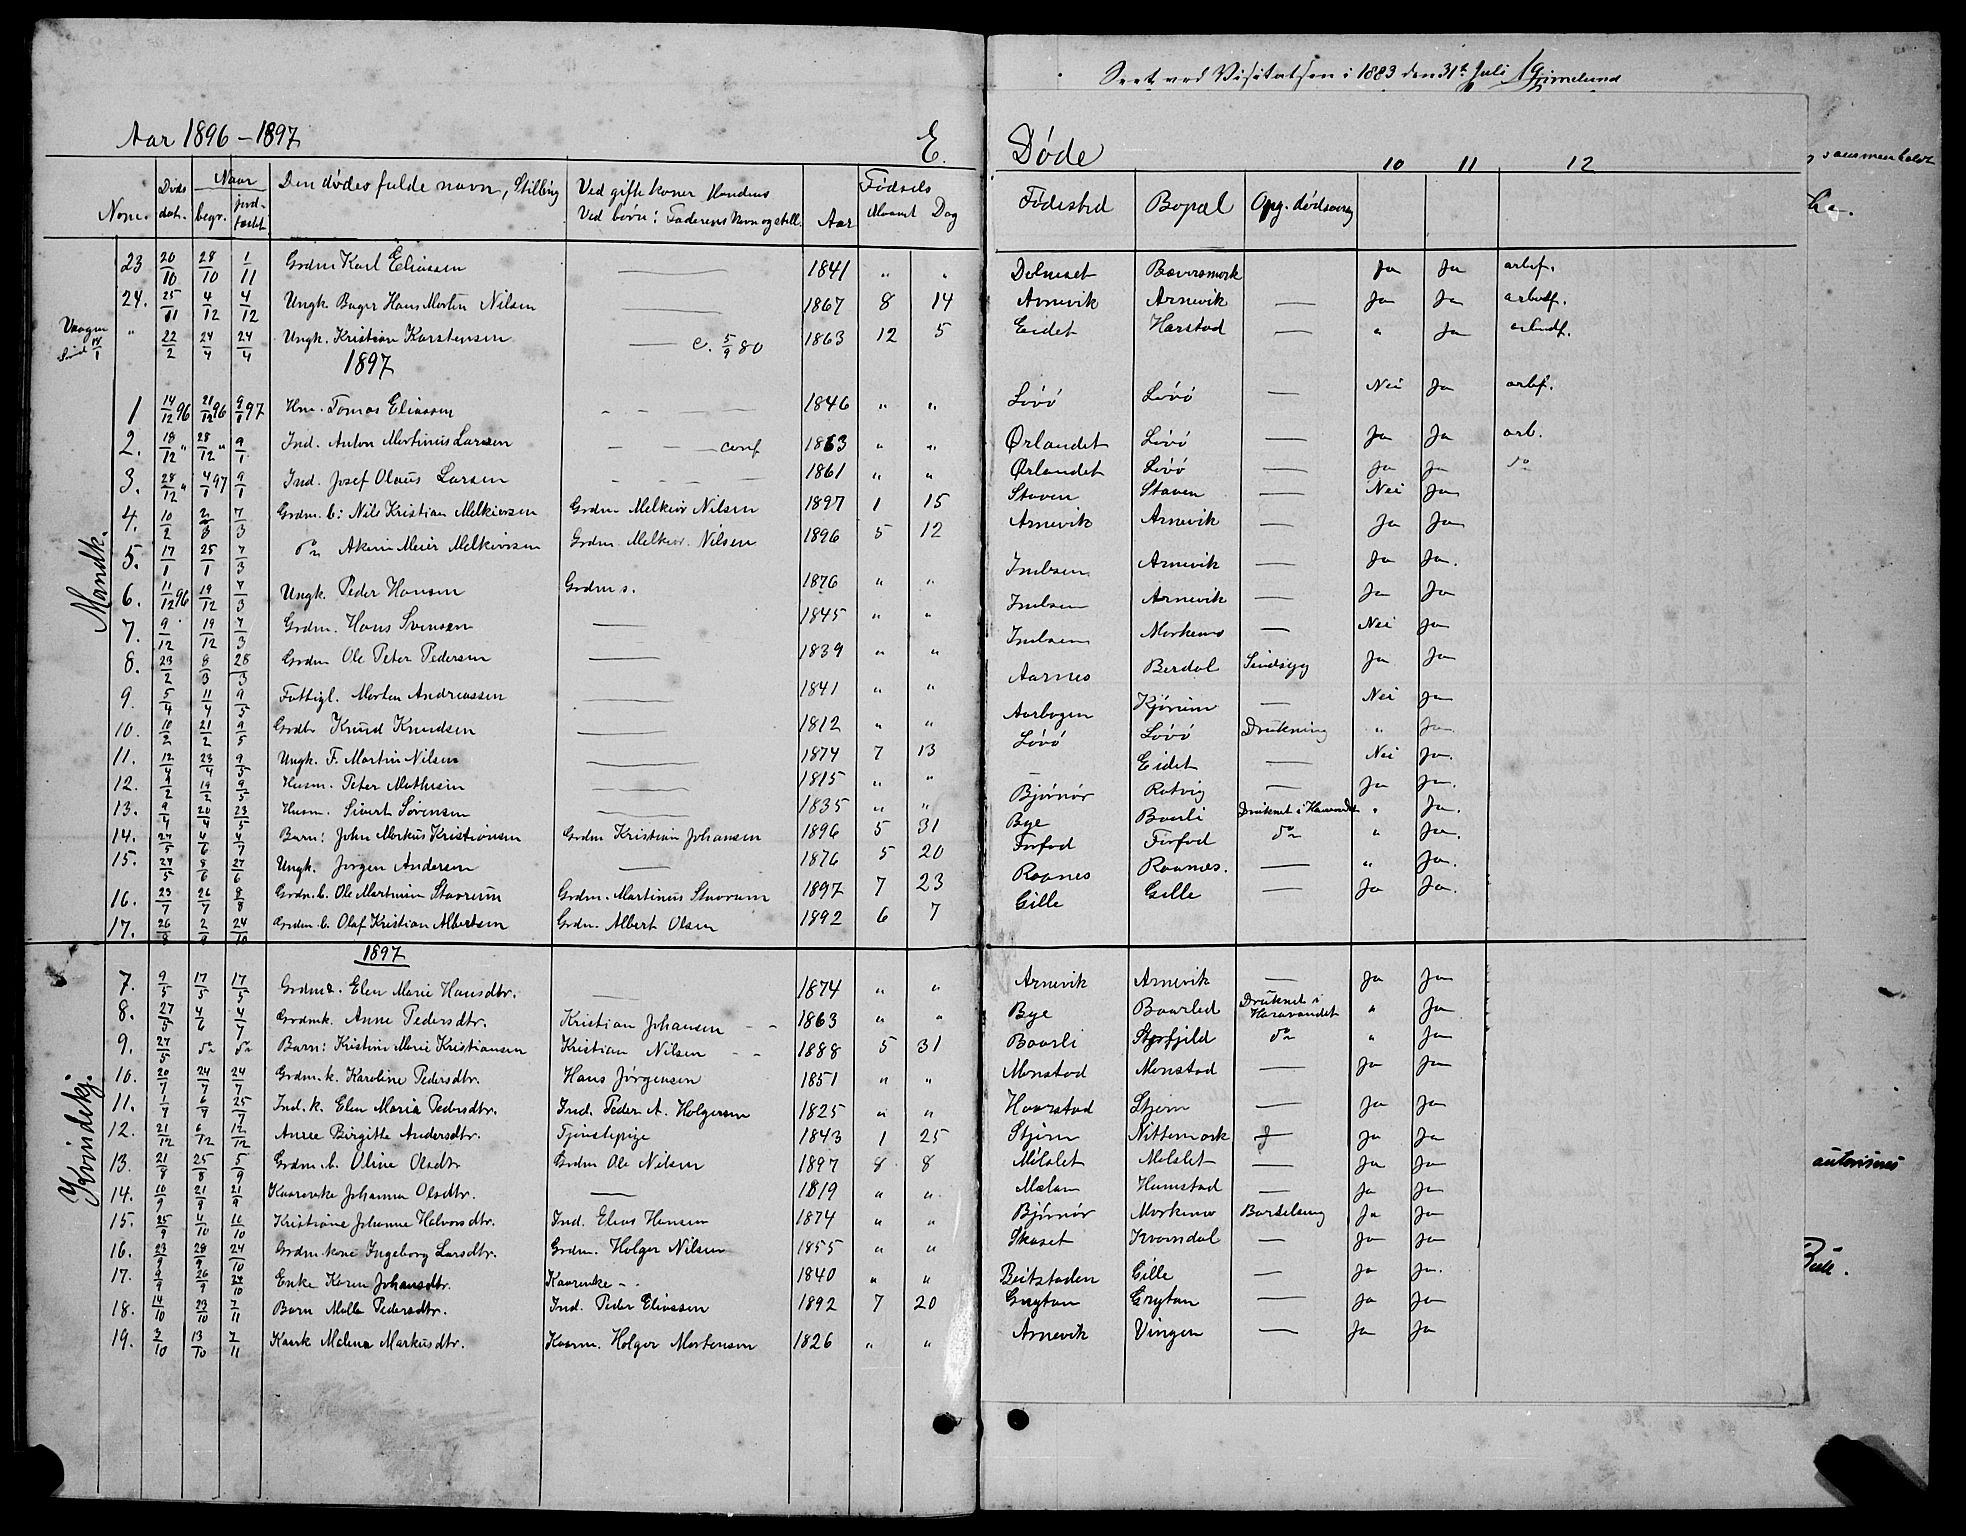 Seet ved Visitatsen i 1883 den 31te Juli Grimelund
Aar 1896-1897 E. Døde
10 11 12
Nom. Døds dat. Naar begr. jord-fæstet Den dødes fulde navn, Stilling Ved gifte koner Mandens Ved børn: Faderens Navn og still. Aar Fødsels Maanet Dag Fødested Bopæl Opg. dødsaarsag
23 20/10 28/10 1/11 Grdm Karl Eliassen — 1841 " " Dolmset Bæversmork Ja Ja arbf.
24. 25/11 4/12 4/12 Ungk Bager Hans Morten Nilsen — 1867 8 14 Arnevik Arnevik — Ja Ja arbudf.
" 22/2 24/4 24/4 Ungk. Kristian Karstensen — c. 5/9 80 1863 12 5 Eidet Harstad — " Ja arbudf.
1897
Mandk.
1 14/12 96 21/12 96 9/1 97 Hm. Tomas Eliassen — 1846 " " Løvø Løvø — Nei Ja arbf.
2. 18/12 " 28/12 " 9/1 Ind. Anton Martinus Larsen — conf 1863 " " Ørlandet Løvø — Ja Ja arb.
3. 28/12 " 4/1 97 9/1 Ind. Josef Olaus Larsen — 1861 " " Ørlandet Løvø — Ja Ja do
4. 10/2 2/3 7/3 Grdm. b: Nils Kristian Melkiorsen Grdm Melkior Nilsen 1897 1 15 Staven Staven — Nei Ja
5. 17/1 25/1 7/3 do Akim Meier Melkiorsen Grdm. Melkior. Nilsen 1896 5 12 Arnevik Arnevik — Ja Ja
6. 11/12 96 19/12 7/3 Ungk. Peder Hansen Grdm s. 1876 " " Arnevik — Ja Ja.
7. 9/12 19/12 7/3 Grdm. Hans Svensen — 1845 " " Arnevik — Ja Ja
8. 23/2 8/3 28/3 Grdm Ole Peter Pedersen — 1839 " " Morkemo — Nei Ja
9. 5/4 11/4 9/5 Fattigl. Morten Andreassen — 1841 " " Aarnes Berdal Sindsyg Ja Ja
10. 10/2 21/2 9/5 Grdbr Knud Knudsen — 1812 " " Aarbogen Kjørum — Nei Ja
11. 12/4 23/4 9/5 Ungk. F. Martin Nilsen — 1874 7 13 Løvø Løvø Drukning " Ja.
12. 9/2 19/2 9/5 Husm. Peter Mathisen — 1815 " " — Eidet — Nei Ja.
13. 9/4 20/4 23/5 Husm. Sivert Sørensen — 1835 " " Bjørnør Ratvig — Ja Ja.
14. 27/5 4/6 4/7 Barn: John Markus Kristiansen Grdm Kristian Johansen 1896 5 31 Bye Baarli Druknet i Haravandet " Ja.
15. 24/5 8/6 27/6 Ungk. Jørgen Andersen — 1876 5 20 Forfod Forfod do " Ja.
16. 23/7 26/7 8/8 Grdm. b. Ole Martinsen Stavrum Grdm. Martinus Stavrum 1897 7 23 Raanes Raanes. — " Ja.
17. 26/8 2/9 24/10 Grdm. b. Olaf Kristian Albertsen Grdm. Albert Olsen 1892 6 7 Gille Gille — Ja Ja.
1897
Kvindekj.
7. 9/5 17/5 17/5 Grdmd. Elen Marie Hansdtr. — 1874 " " Arnevik Arnevik — Ja Ja
8. 27/5 4/6 4/7 Grdmk. Anne Pedersdtr. Kristian Johansen - - 1863 " " Bye Baarlid Druknet i Haravandet " Ja
9. 27/5 do do Barn: Kristine Marie Kristiansen Kristian Nilsen - - 1888 5 31 Baarli Storfjeld do " Ja
10. 20/7 24/7 24/7 Grdm. k. Karoline Pedersdtr. Hans Jørgensen 1851 " " Monstad Monstad — Ja Ja
11. 1/7 6/7 25/7 Ind. k. Elen Maria Pedersdtr. Ind. Peder A. Holgersen 1825 " " Haarstad Stjørn — Ja Ja
12. 21/12 6/12 12/12 Anne Birgitte Andersdtr. Tjenstepige 1843 1 25 Stjørn Nittemark Ja Ja
13. 21/8 25/8 5/9 Grdm. b. Oline Olsdtr Grdm Ole Nilsen 1897 8 8 Melslet Melslet — Ja Ja
14. 10/9 21/9 21/9 Kaarenke Johanna Olsdtr. — 1819 " " Malan Humstad — Ja Ja
15. 25/9 4/10 11/10 Kristiane Johanne Halvorsdtr. Ind. Elias Hansen 1874 " " Bjørnør Morkemo Barselseng Ja Ja
16. 23/9 28/9 24/10 Grdm. kone Ingeborg Larsdtr. Grdm. Holger Nilsen 1855 " " Skaset Kvorndal — Ja Ja
17. 9/9 26/9 24/10 Enke Karen Johansdtr. Kaarenke - - 1840 " " Beitstaden Gille — Ja Ja.
18. 14/10 23/10 7/11 Barn Malla Pedersdtr. Ind. Peder Eliassen 1892 7 20 Grytan Grytan — Ja Ja
19. 3/10 13/10 7/11 Kaark Malena Markusdtr. Kaarm. Holger Mortensen 1826 " " Arnevik Vingen — Ja Ja